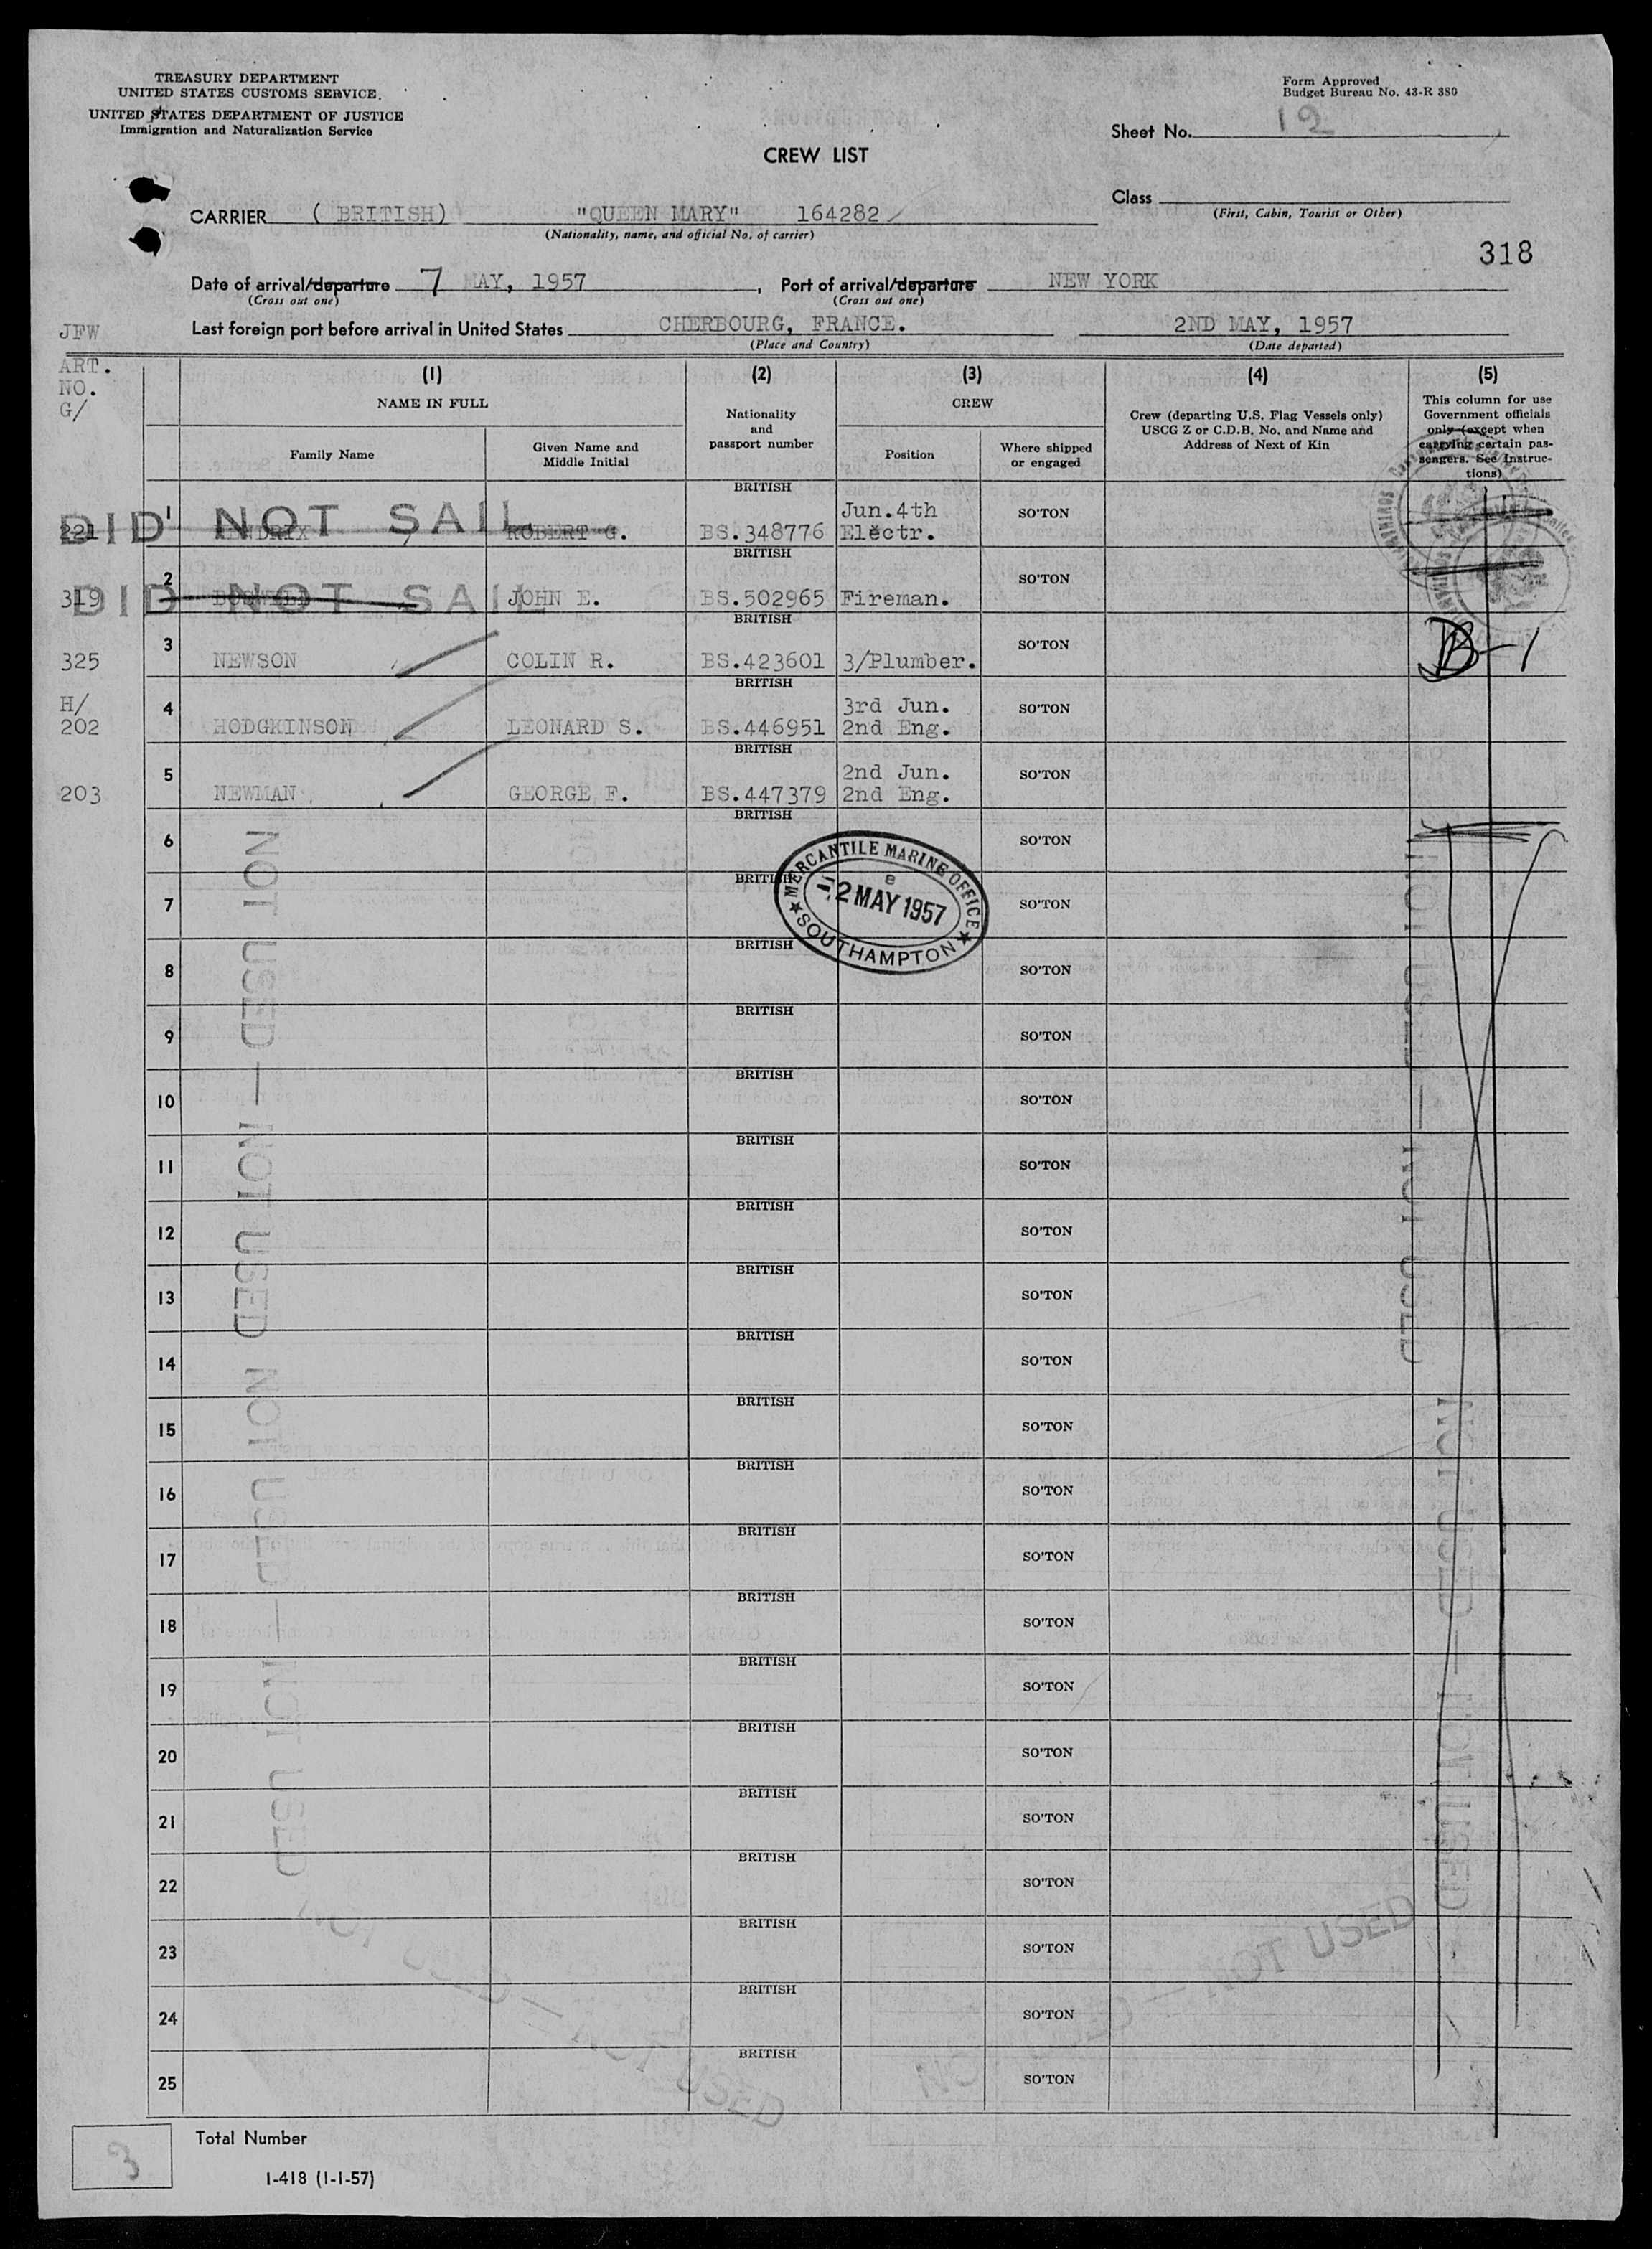 TREASURY DEPARTMENT
UNITED STATES CUSTOMS SERVICE.
UNITED STATES DEPARTMENT OF JUSTICE
Immigration and Naturalization Service
Form Approved
Budget Bureau No. 43-R 380
Sheet No. 12
CREW LIST
Class
(First, Cabin, Tourist or Other)
CARRIER ( BRITISH) "QUEEN MARY" 164282
(Nationality, name, and official No. of carrier)
318
Date of arrival/departure 7 MAY, 1957, Port of arrival/departure NEW YORK
(Cross out one) (Cross out one)
Last foreign port before arrival in United States CHERBOURG, FRANCE. 2ND MAY, 1957
(Place and Country) (Date departed)
JFW
ART.
NO.
G/
(1) (2) (3) (4) (5)
NAME IN FULL
Family Name
Given Name and
Middle Initial
Nationality
and
passport number
CREW
Position
Where shipped
or engaged
Crew (departing U.S. Flag Vessels only)
USCG Z or C.D.B. No. and Name and
Address of Next of Kin
This column for use
Government officials
only (except when
carrying certain pas-
sengers. See Instruc-
tions)
BRITISH
1 Jun.4th SO'TON
DID NOT SAIL
221 ROBERT G. BS.348776 Electr.
BRITISH
2 SO'TON
DID NOT SAIL
319 JOHN E. BS.502965 Fireman.
BRITISH
3 SO'TON
325 NEWSON COLIN R. BS.423601 3/Plumber. B-1
BRITISH
H/ 4 3rd Jun. SO'TON
202 HODGKINSON LEONARD S. BS.446951 2nd Eng.
BRITISH
5 2nd Jun. SO'TON
203 NEWMAN GEORGE F. BS.447379 2nd Eng.
BRITISH
6 SO'TON
BRITISH
7 SO'TON
MERCANTILE MARINE OFFICE
B
2 MAY 1957
SOUTHAMPTON
BRITISH
8 SO'TON
BRITISH
9 SO'TON
BRITISH
10 SO'TON
BRITISH
11 SO'TON
BRITISH
12 SO'TON
BRITISH
13 SO'TON
BRITISH
14 SO'TON
BRITISH
15 SO'TON
BRITISH
16 SO'TON
BRITISH
17 SO'TON
BRITISH
18 SO'TON
BRITISH
19 SO'TON
BRITISH
20 SO'TON
BRITISH
21 SO'TON
BRITISH
22 SO'TON
BRITISH
23 SO'TON
BRITISH
24 SO'TON
BRITISH
25 SO'TON
NOT USED — NOT USED
NOT USED — NOT USED
NOT USED — NOT USED
NOT USED — NOT USED
NOT USED — NOT USED
NOT USED — NOT USED
3 Total Number
I-418 (1-1-57)